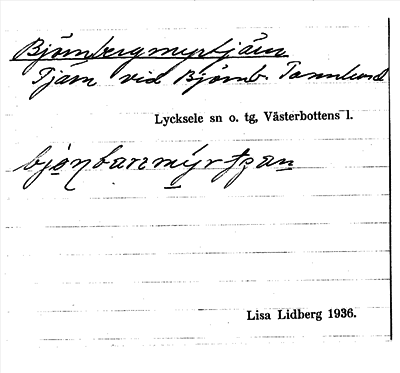 Björnbergmyrtjärn
Tjärn vid Björnb. Tannlund
Lycksele sn o. tg, Västerbottens l.
Lisa Lidberg 1936.